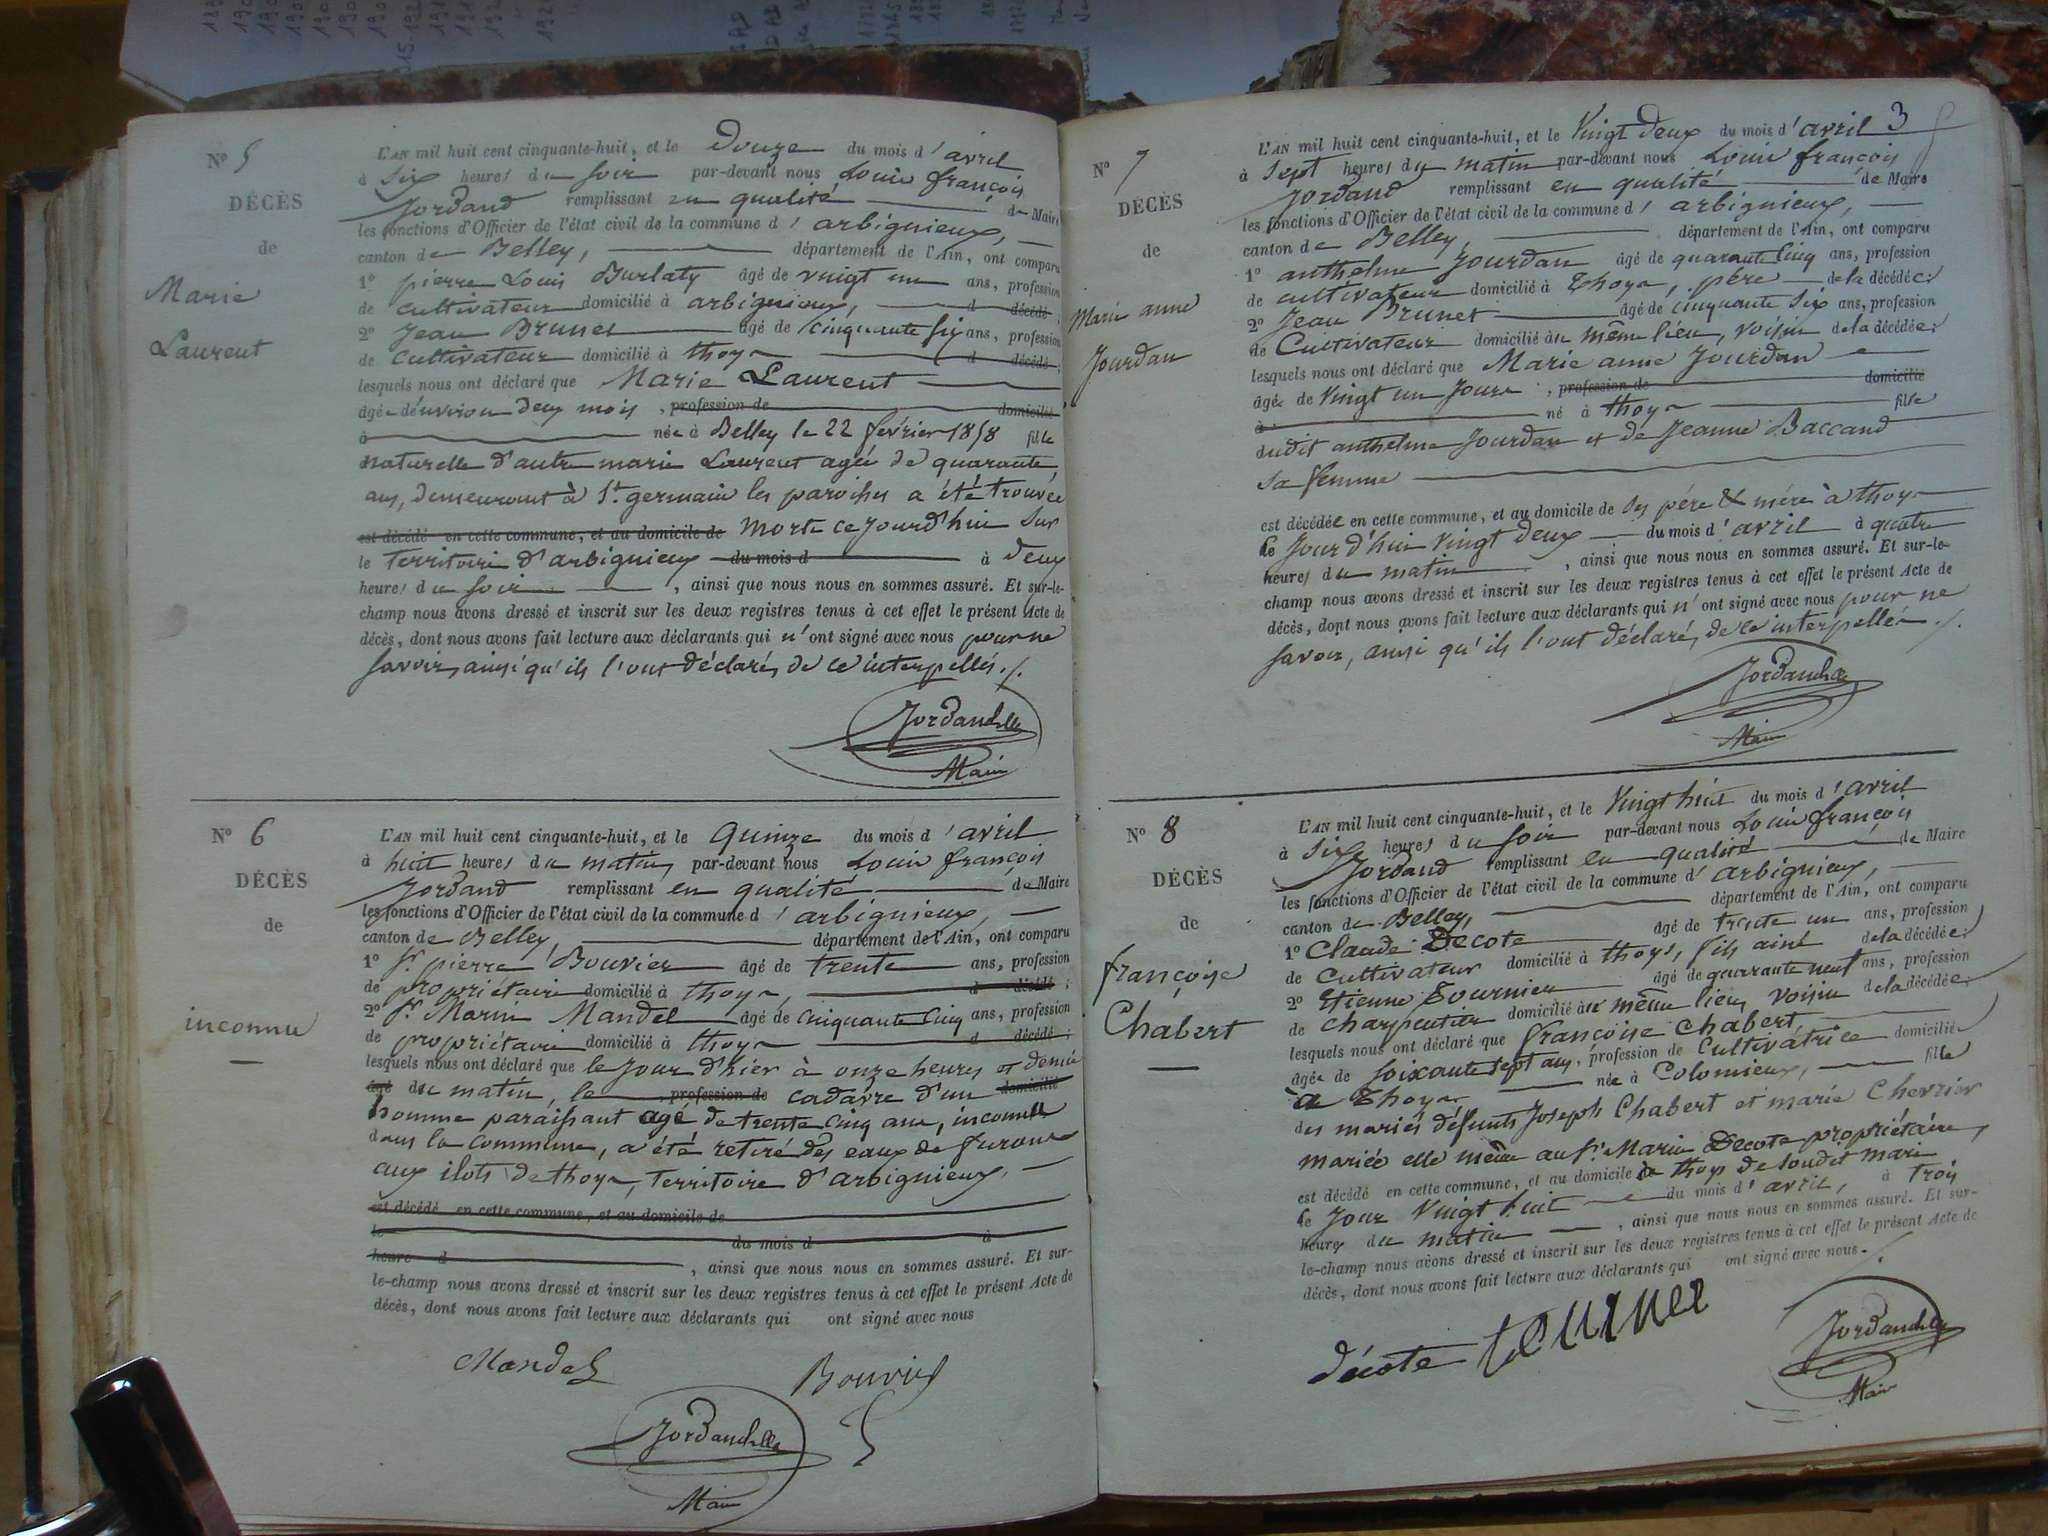 N° 5
DÉCÈS
de
Marie
Laurent
L'AN mil huit cent cinquante-huit, et le Douze du mois d'avril
à Six heures du soir par-devant nous Louis françois
Jordand remplissant en qualité de Maire
les fonctions d'Officier de l'état civil de la commune d'arbignieux,
canton de Belley, département de l'Ain, ont comparu
1° pierre Louis Burlaty âgé de vingt un ans, profession
de cultivateur domicilié à arbignieux, d décédé ;
2° Jean Brunet âgé de cinquante six ans, profession
de cultivateur domicilié à thoys d décédé ;
lesquels nous ont déclaré que Marie Laurent
âgée d'environ deux mois, profession de domicilié
à née à Belley le 22 février 1858 fille
naturelle d'autre marie Laurent agée de quarante
ans, demeurant à St. germain les paroisses a été trouvée
est décédé en cette commune, et au domicile de morte ce jourd'hui sur
le territoire d'arbignieux du mois d à deux
heures du soir , ainsi que nous nous en sommes assuré. Et sur-le-
champ nous avons dressé et inscrit sur les deux registres tenus à cet effet le présent Acte de
décès, dont nous avons fait lecture aux déclarants qui n'ont signé avec nous pour ne
savoir, ainsi qu'ils l'ont déclaré, de ce interpellés ./.
Jordand
Maire
N° 6
DÉCÈS
de
inconnu
L'AN mil huit cent cinquante-huit, et le quinze du mois d'avril
à huit heures du matin, par-devant nous Louis françois
Jordand remplissant en qualité de Maire
les fonctions d'Officier de l'état civil de la commune d'arbignieux,
canton de Belley, département de l'Ain, ont comparu
1° Sr. pierre Bouvier âgé de trente ans, profession
de propriétaire domicilié à thoys, d décédé ;
2° Sr. Marin Mandel âgé de cinquante cinq ans, profession
de propriétaire domicilié à thoys d décédé ;
lesquels nous ont déclaré que le jour d'hier à onze heures et demie
âgé du matin, le profession de cadavre d'un domicilié
homme paraissant agé de trente cinq ans, inconnu
dans la commune, a été retiré des eaux de furans
aux ilots de thoys, territoire d'arbignieux.
est décédé en cette commune, et au domicile de
le du mois d à
heure d , ainsi que nous nous en sommes assuré. Et sur-
le-champ nous avons dressé et inscrit sur les deux registres tenus à cet effet le présent Acte de
décès, dont nous avons fait lecture aux déclarants qui ont signé avec nous
Mandel Bouvier
Jordand
Maire
3
N° 7
DÉCÈS
de
Marie anne
Jourdan
L'AN mil huit cent cinquante-huit, et le vingt deux du mois d'avril
à sept heures du matin par-devant nous Louis françois
Jordand remplissant en qualité de Maire
les fonctions d'Officier de l'état civil de la commune d'arbignieux,
canton de Belley, département de l'Ain, ont comparu
1° anthelme Jourdan âgé de quarante cinq ans, profession
de cultivateur domicilié à Thoys, père de la décédée ;
2° Jean Brunet âgé de cinquante six ans, profession
de Cultivateur domicilié au même lieu, voisin de la décédée ;
lesquels nous ont déclaré que Marie anne Jourdan
âgée de vingt un jours, profession de domicilié
à né à thoys fille
dudit anthelme Jourdan et de Jeanne Baccand
sa femme
est décédée en cette commune, et au domicile de ses père & mère à thoys
le jour d'hui vingt deux du mois d'avril à quatre
heures du matin , ainsi que nous nous en sommes assuré. Et sur-le-
champ nous avons dressé et inscrit sur les deux registres tenus à cet effet le présent Acte de
décès, dont nous avons fait lecture aux déclarants qui n'ont signé avec nous pour ne
savoir, ainsi qu'ils l'ont déclaré, de ce interpellés ./.
Jordand
Maire
N° 8
DÉCÈS
de
françoise
Chabert
L'AN mil huit cent cinquante-huit, et le vingt huit du mois d'avril
à Six heures du soir par-devant nous Louis françois
Jordand remplissant en qualité de Maire
les fonctions d'Officier de l'état civil de la commune d'arbignieux,
canton de Belley, département de l'Ain, ont comparu
1° Claude Decote âgé de trente un ans, profession
de cultivateur domicilié à thoys, fils ainé de la décédée ;
2° Etienne Fournier âgé de quarante neuf ans, profession
de charpentier domicilié au même lieu, voisin de la décédée ;
lesquels nous ont déclaré que françoise Chabert
âgée de soixante sept ans, profession de Cultivatrice domiciliée
à Thoys née à Colomieux, fille
des mariés défunts Joseph Chabert et marie Chevrier
mariée elle même au Sr. Marin Decote propriétaire,
est décédé en cette commune, et au domicile à thoys de sondit mari
le jour vingt huit du mois d'avril, à trois
heures du matin , ainsi que nous nous en sommes assuré. Et sur-
le-champ nous avons dressé et inscrit sur les deux registres tenus à cet effet le présent Acte de
décès, dont nous avons fait lecture aux déclarants qui ont signé avec nous ./.
décote
Jordand
Maire